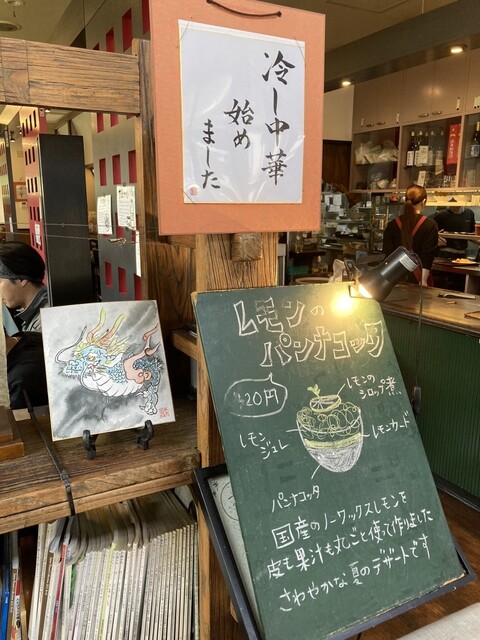 冷し中華
始め
ました
レモンの
パンナコッタ
420円
レモンの
シロップ煮
レモン
ジュレ
レモンカード
パンナコッタ
国産のノーワックスレモンを
皮も果汁も丸ごと使って作りました
さわやかな夏のデザートです